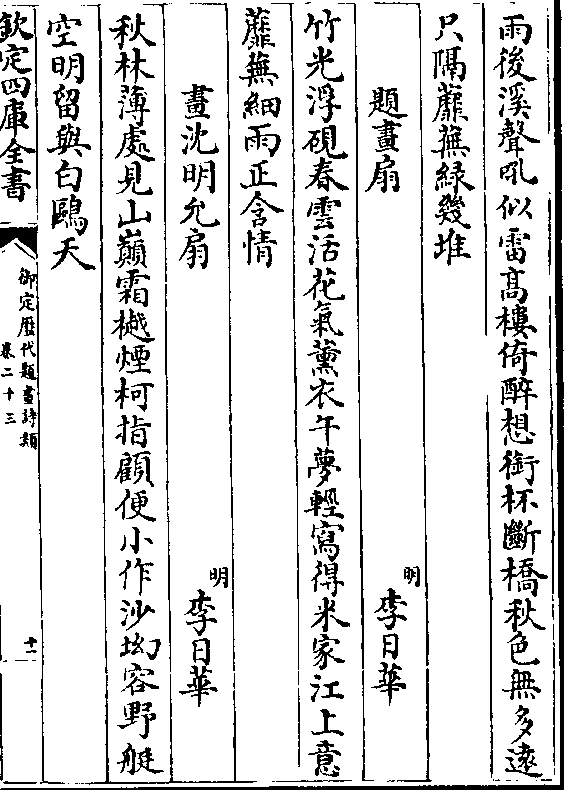 雨後溪聲吼似雷高樓倚醉想銜杯斷橋秋色無多遠
只隔蘼蕪緑幾堆
題畫扇 明 李日華
竹光浮硯春雲活花氣薰衣午夢輕寫得米家江上意
蘼蕪細雨正含情
畫沈明允扇 明 李日華
秋林薄處見山巔霜樾煙柯指顧便小作沙坳容野艇
空明留與白鷗天
欽定四庫全書
御定歴代題畫詩類
卷二十三
十一